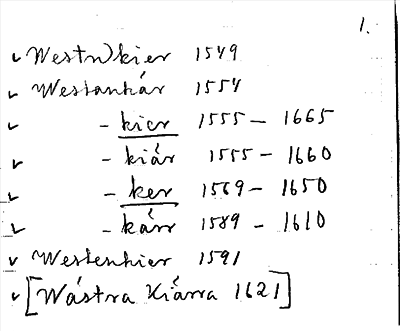 1.
✓ West(n)kier 1549
✓ Westankár 1554
✓ - kier 1555 – 1665
✓ - kiár 1555 – 1660
✓ - ker 1569 – 1650
✓ - kárr 1589 – 1610
✓ Westenkier 1591
✓ [Wástra Kiárra 1621]